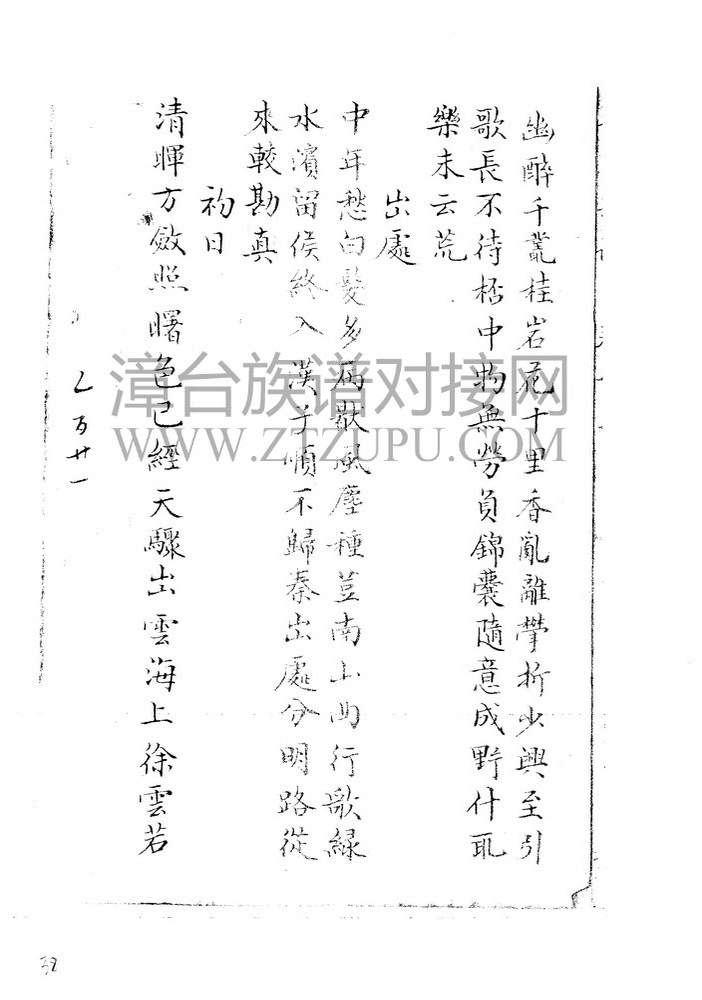 幽醉千叢桂岩花十里香亂離攀折少興至引
歌長不待桮中物無勞負錦囊隨意成野什耴
樂未云荒
出處
中年愁白髮多病歇風塵種荳南山曲行歌緑
水濱留侯終入漢子順不歸秦出處分明路從
來較勘真
初日
清暉方斂照曙色已經天驟出雲海上徐雲若
乙百廿一
漳台族谱对接网
WWW.ZTZUPU.COM
38